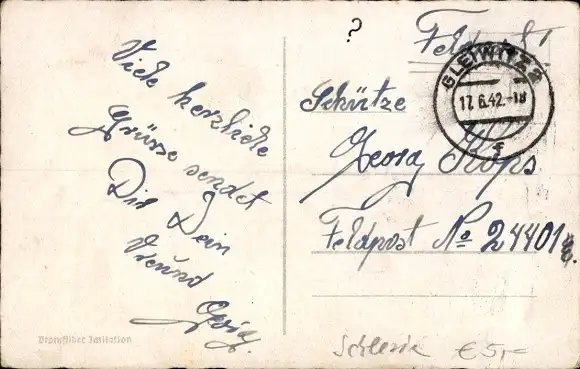 Viele herzliche
Grüsse sendet
Dir Dein
Freund
Georg.
?
Feldpost
GLEIWITZ 2
17.6.42.-18
f
Schütze
Georg Kops
Feldpost No 24401
Bromsilber Imitation
Schlesie € 5,-